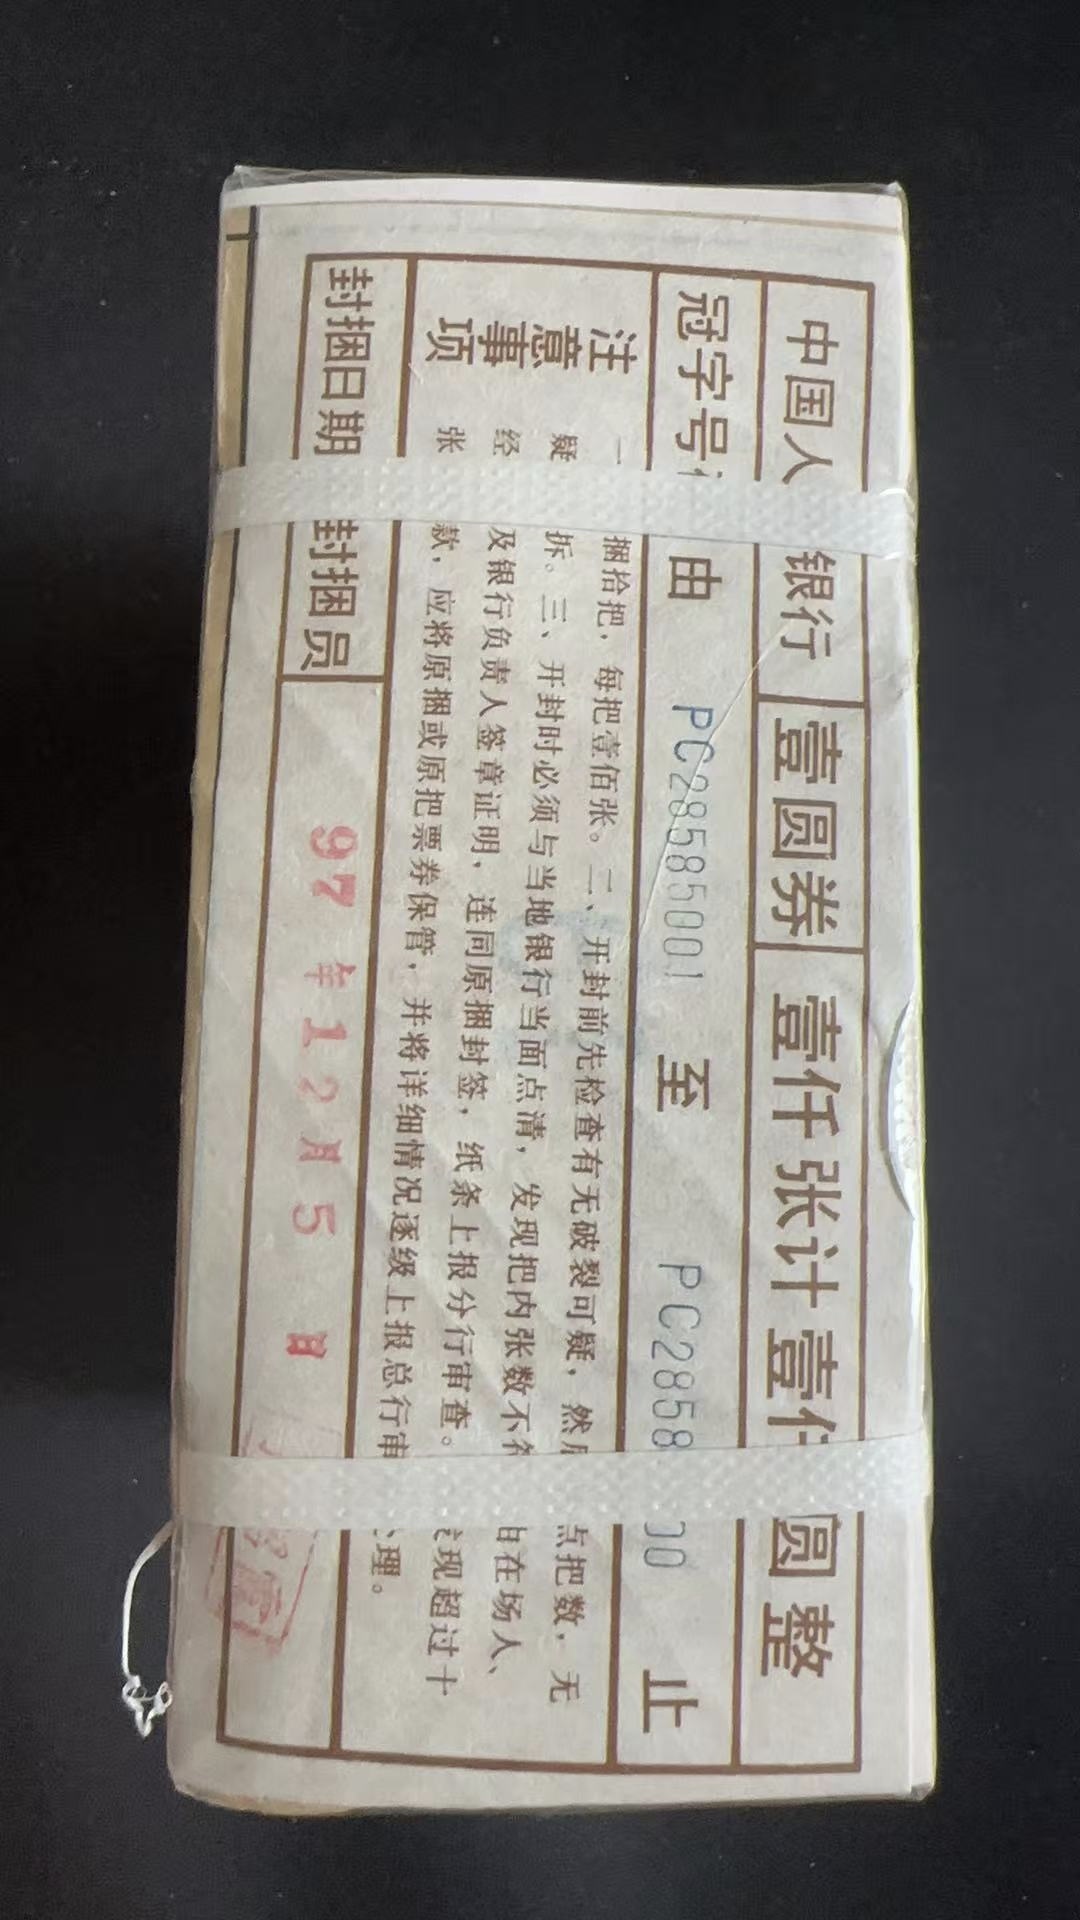 中国人 银行 壹圆券 壹仟张计壹仟 圆整
冠字号 由 PC28585001 至 PC2858 00 止
注意事项
一 捆拾把，每把壹佰张。二、开封前先检查有无破裂可疑，然后 点把数，无
疑 拆。三、开封时必须与当地银行当面点清，发现把内张数不符 由在场人、
经 及银行负责人签章证明，连同原捆封签，纸条上报分行审查。 发现超过十
张 款，应将原捆或原把票券保管，并将详细情况逐级上报总行审 理。
封捆日期 封捆员 97年12月5日